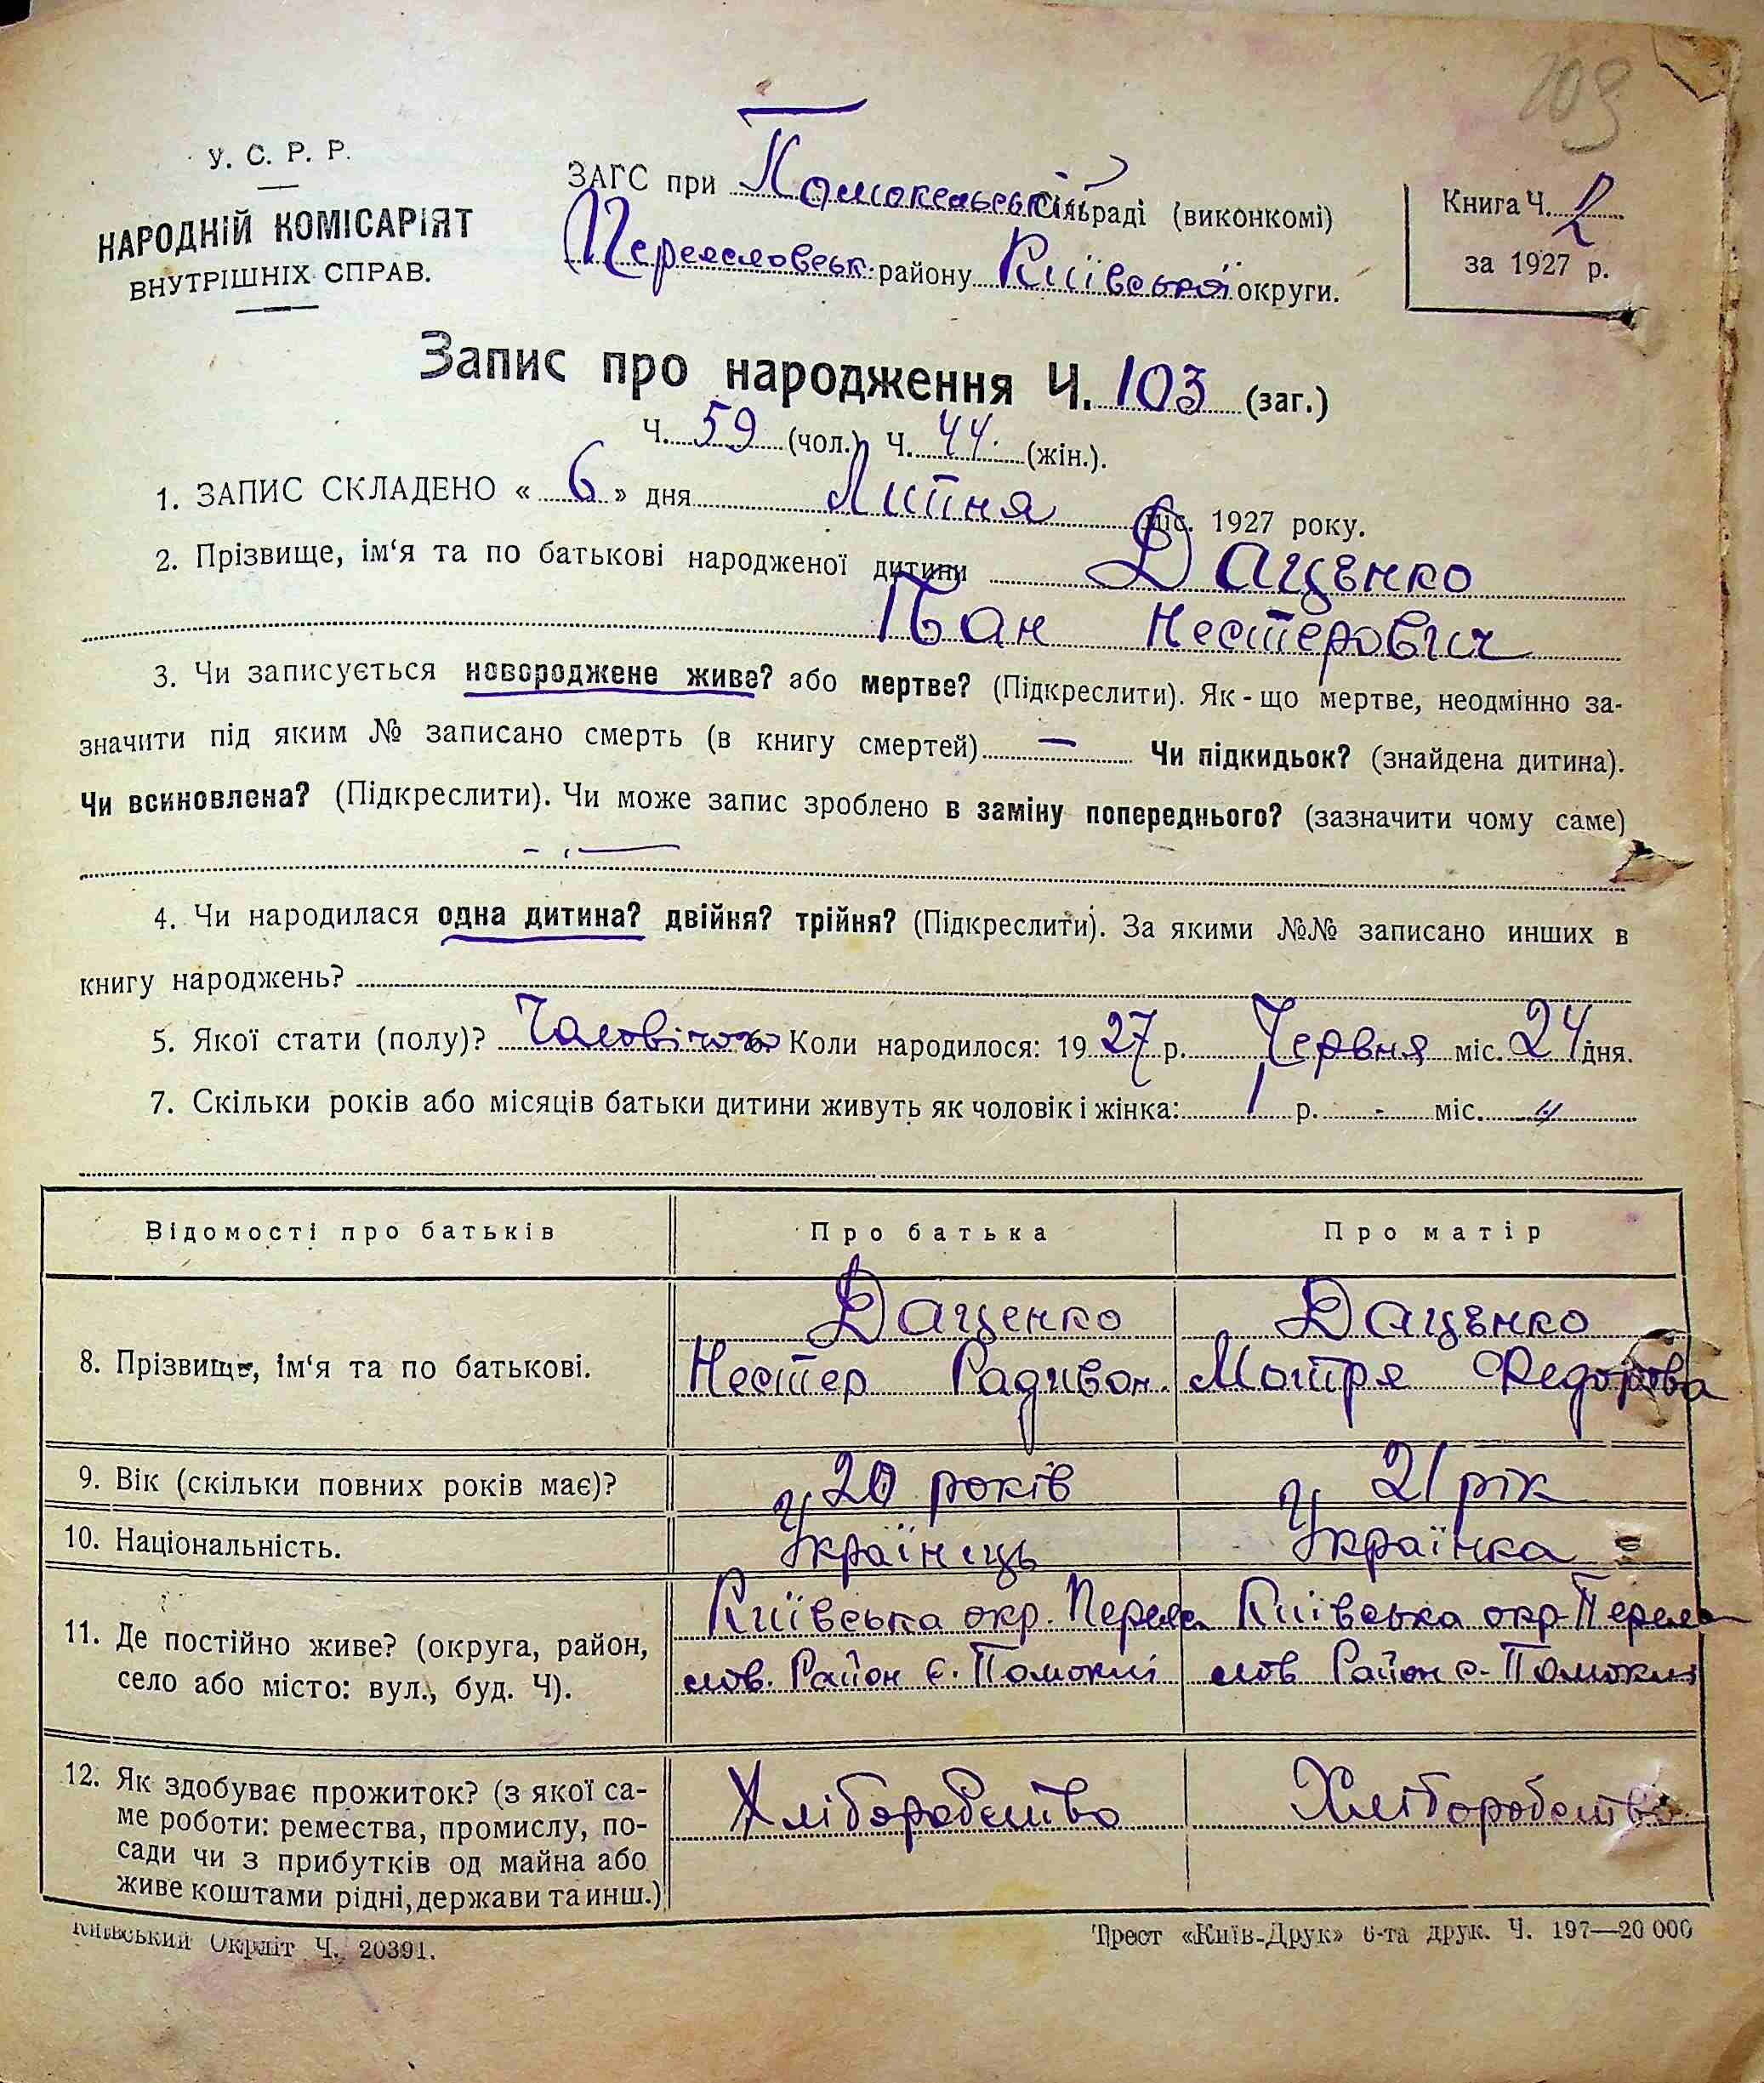 109
У. С. Р. Р.
НАРОДНІЙ КОМІСАРІЯТ
ВНУТРІШНІХ СПРАВ.
ЗАГС при Помокельській сільраді (виконкомі)
Переяславськ. району Київської округи.
Книга Ч. 2
за 1927 р.
Запис про народження Ч. 103 (заг.)
Ч. 59 (чол.) Ч. 44. (жін.).
1. ЗАПИС СКЛАДЕНО « 6 » дня Липня міс. 1927 року.
2. Прізвище, ім‘я та по батькові народженої дитини Даценко
Іван Нестерович
3. Чи записується новороджене живе? або мертве? (Підкреслити). Як - що мертве, неодмінно за-
значити під яким № записано смерть (в книгу смертей) — Чи підкидьок? (знайдена дитина).
Чи всиновлена? (Підкреслити). Чи може запис зроблено в заміну попереднього? (зазначити чому саме)
4. Чи народилася одна дитина? двійня? трійня? (Підкреслити). За якими №№ записано инших в
книгу народжень?
5. Якої стати (полу)? Чоловічої 6. Коли народилося: 1927 р. Червня міс. 24 дня.
7. Скільки років або місяців батьки дитини живуть як чоловік і жінка: 1 р. - міс. "
Відомості про батьків Про батька Про матір
8. Прізвище, ім‘я та по батькові.
Даценко Даценко
Нестер Радивон. Мотря Федорова
9. Вік (скільки повних років має)? 20 років 21 рік
10. Національність. Українець Українка
11. Де постійно живе? (округа, район,
село або місто: вул., буд. Ч).
Київська окр. Переяс Київська окр. Перея
лов. Район с. Помоклі слов Район с. Помоклі
12. Як здобуває прожиток? (з якої са-
ме роботи: ремества, промислу, по-
сади чи з прибутків од майна або
живе коштами рідні, держави та инш.)
Хліборобство Хліборобство
Київський Окрліт Ч. 20391.
Трест «Київ-Друк» 6-та друк. Ч. 197—20 000